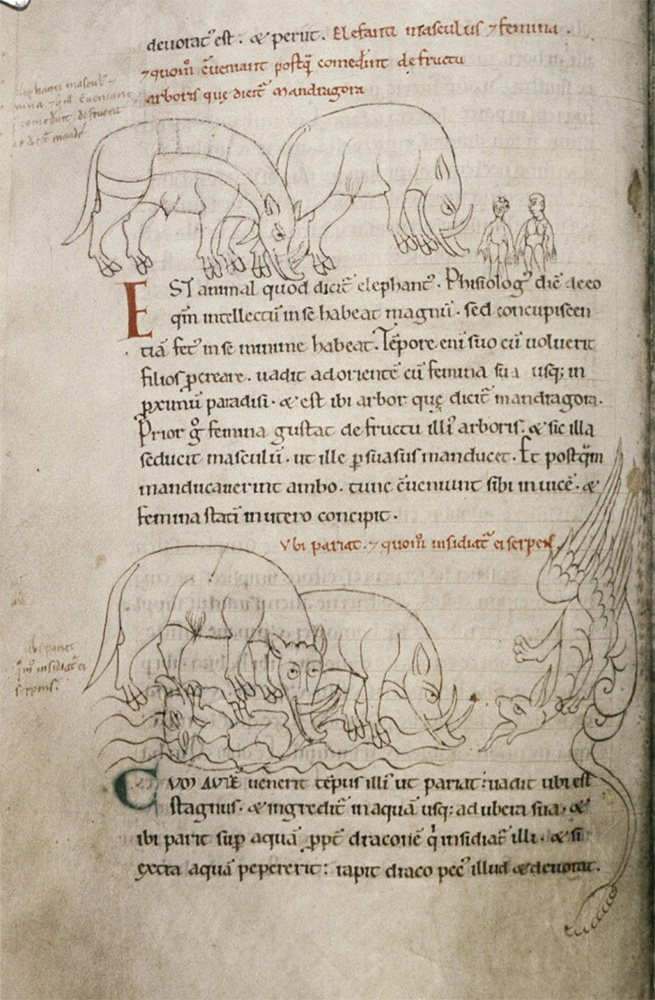 deuorat᷒ est. & perit. Elefanti masculus ⁊ femina.
⁊ quom̄ c̄ueniant postq̄ comedunt de fructu
arboris que dicit᷑ Mandragora
EST animal quod dicit᷑ elephant᷒. Phisiolog᷒ dic̄ de eo
qm̄ intellectū in se habeat magnū. sed concupiscen
tiā fet᷒ in se minime habeat. Tēpore eni suo cū uoluerit
filios ꝓcreare. uadit ad orientē cū femina sua usq; in
ꝓximū paradisi. & est ibi arbor quę dicit᷑ mandragora.
Prior g̊ femina gustat de fructu illi᷒ arboris. & sic illa
seducit masculū. ut ille ꝑsuasus manducet. Et postqm̄
manducauerint ambo. tunc c̄ueniunt sibi inuicē. &
femina statī in utero concipit.
Vbi pariat. ⁊ quom̄ insidiat᷑ ei serpens
ubi pariat
qm̄ insidiat᷑ ei
serpens.
CVM AVTĒ uenerit tēpus illi᷒ ut pariat: uadit ubi est
stagnus. & ingredit᷑ in aquā usq; ad ubera sua. &
ibi parit suꝑ aquā ꝓpt̄ draconē q̄ insidiat᷑ illi. & si
extra aquā pepererit: rapit draco pec᷒ illud & deuorat.